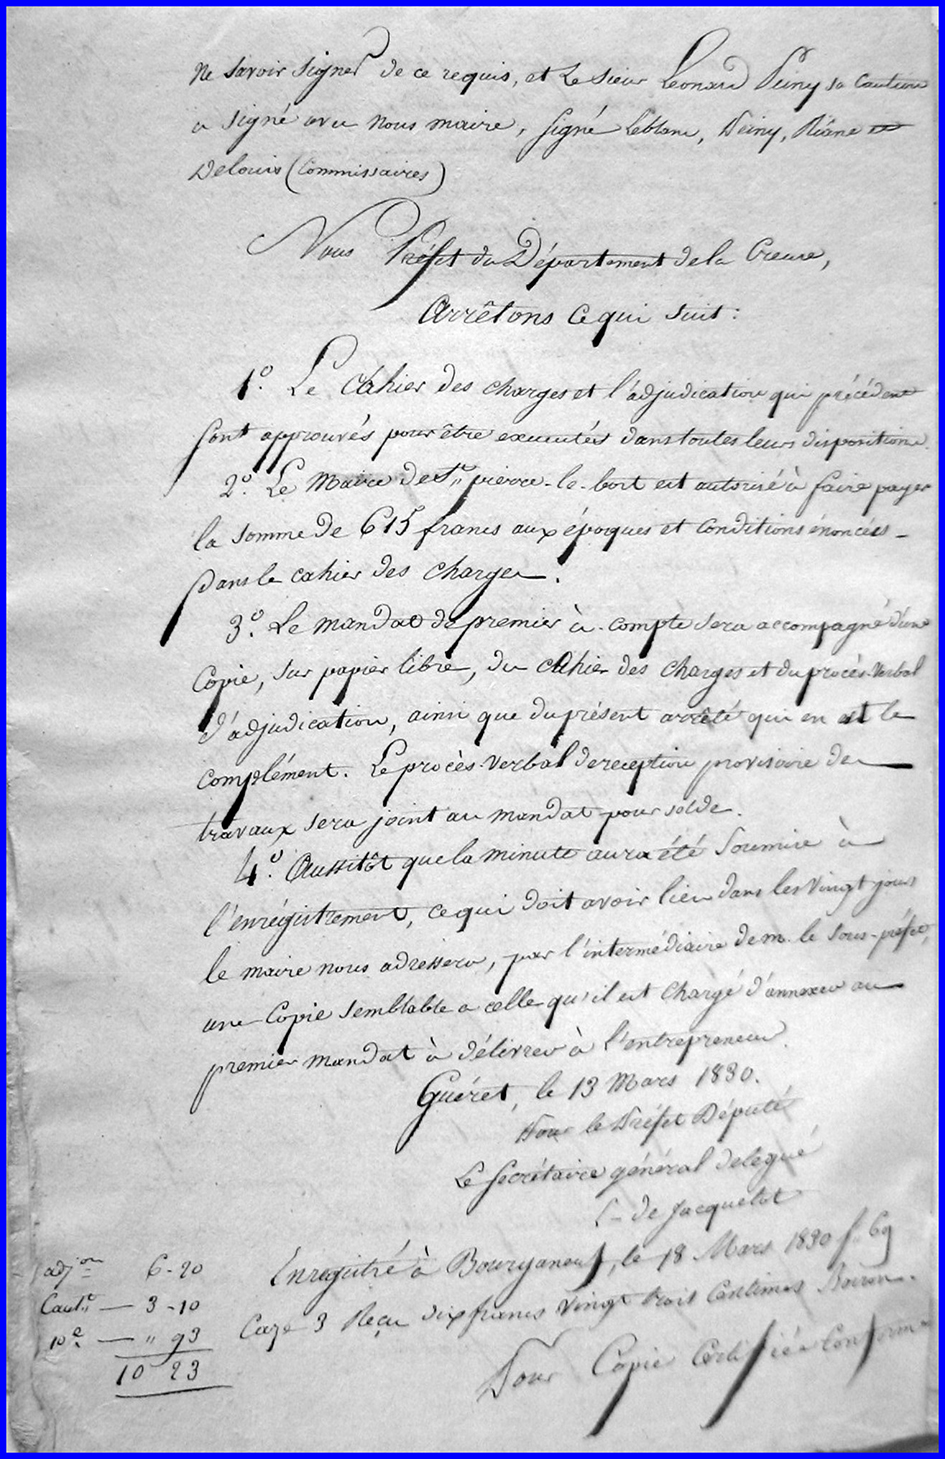 ne savoir signer de ce requis, et le sieur Léonard Peiny sa caution
a signé avec nous maire, signé Leblanc, Peiny, Riane et
Delouis (Commissaires)
Nous Préfet du Département de la Creuse,
Arrêtons ce qui suit :
1º. Le Cahier des charges et l'adjudication qui précèdent
sont approuvés pour être executés dans toutes leurs dispositions.
2º. Le Maire de St. pierre-le-bort est autorisé à faire payer
la somme de 615 francs aux époques et conditions énoncées
Dans le cahier des charges.
3º. Le mandat de premier à-compte sera accompagné d'une
Copie, sur papier libre, du cahier des charges et du procès-verbal
d'adjudication, ainsi que du présent arrêté qui en est le
complément. Le procès-verbal de reception provisoire de
travaux sera joint au mandat pour solde.
4º. Aussitôt que la minute aura été soumise à
l'enrégistrement, ce qui doit avoir lieu dans les vingt jours
le maire nous adressera, par l'intermédiaire de m. le Sous-préfet,
une Copie semblable a celle qu'il est chargé d'annexer au
premier mandat à délivrer à l'entrepreneur.
Guéret, le 13 Mars 1830.
Pour le Préfet Député
Le Secrétaire général delegué
de Jacquelot
Enregistré à Bourganeuf, le 18 Mars 1830 fº. 69
Case 3 Reçu dix francs vingt trois Centimes
Pour Copie Certifiée Conforme
adjon 6-20
Cautt — 3-10
10e. — " 93
10 23